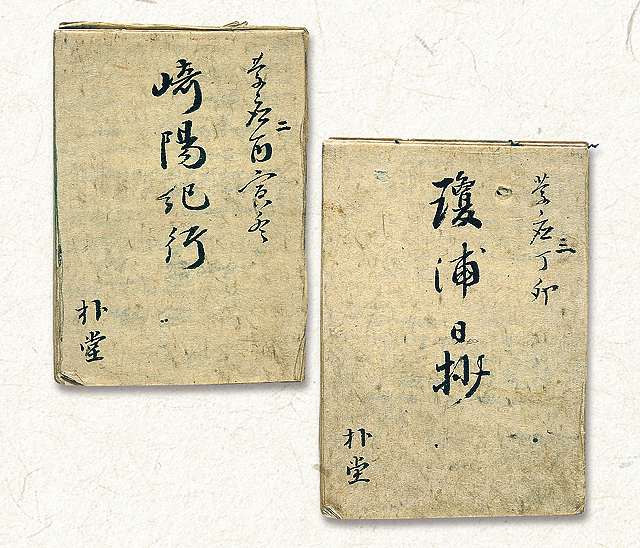 慶応二丙寅冬
崎陽紀行
朴堂
慶応三丁卯
瓊浦日抄
朴堂